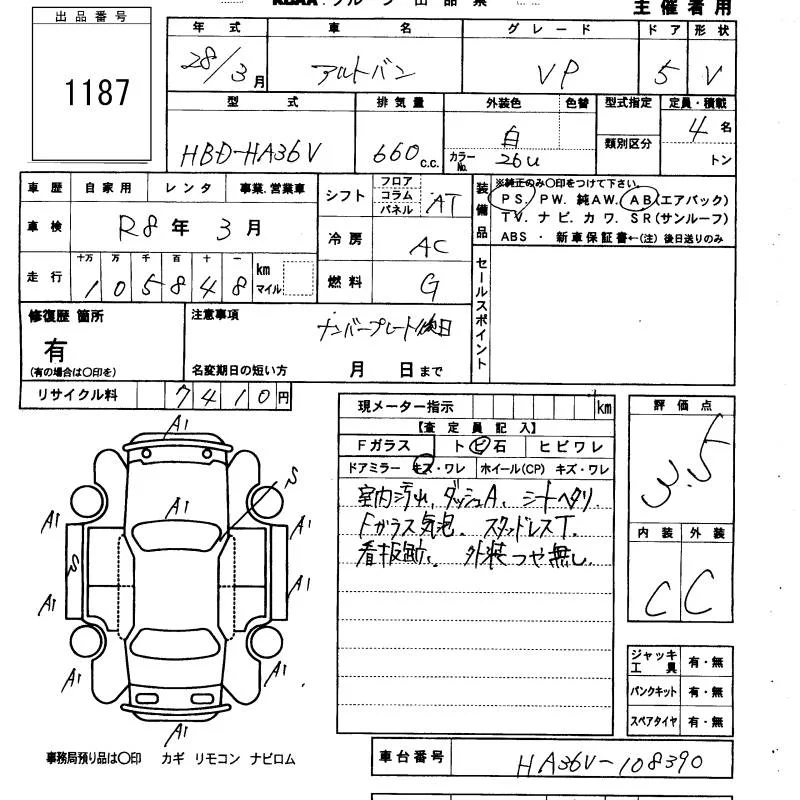 出品番号
1187
主催者用
年式 車名 グレード ドア 形状
28/3月 アルトバン VP 5 V
型式 排気量 外装色 色替 型式指定 定員・積載
HBD-HA36V 660 c.c. 白 カラーNo. 26U 類別区分 4名
トン
車歴 自家用 レンタ 事業.営業車
車検 R8年 3月
走行 十万 万 千 百 十 一
105848 km マイル
シフト フロア コラム パネル AT
冷房 AC
燃料 G
装備品 ※純正のみ〇印をつけて下さい。
PS. PW. 純AW. AB(エアバック)
TV. ナビ. カワ. SR(サンルーフ)
ABS ・ 新車保証書←(注) 後日送りのみ
セールスポイント
修復歴 箇所
有
(有の場合は〇印を)
注意事項
ナンバープレート後日
名変期日の短い方 月 日まで
リサイクル料 7410円
現メーター指示 km
【査定員記入】
Fガラス トビ石 ヒビワレ
ドアミラー キズ・ワレ ホイール(CP) キズ・ワレ
室内汚れ、ダッシュA、シートヘタリ、
Fガラス気泡、スタッドレスT.
看板跡、外装つや無し
評価点
3.5
内装 外装
C C
ジャッキ工具 有・無
パンクキット 有・無
スペアタイヤ 有・無
A1
A1
S
A1 A1
S
A1 A1
A1 A1
A1
事務局預り品は〇印 カギ リモコン ナビロム
車台番号 HA36V-108390